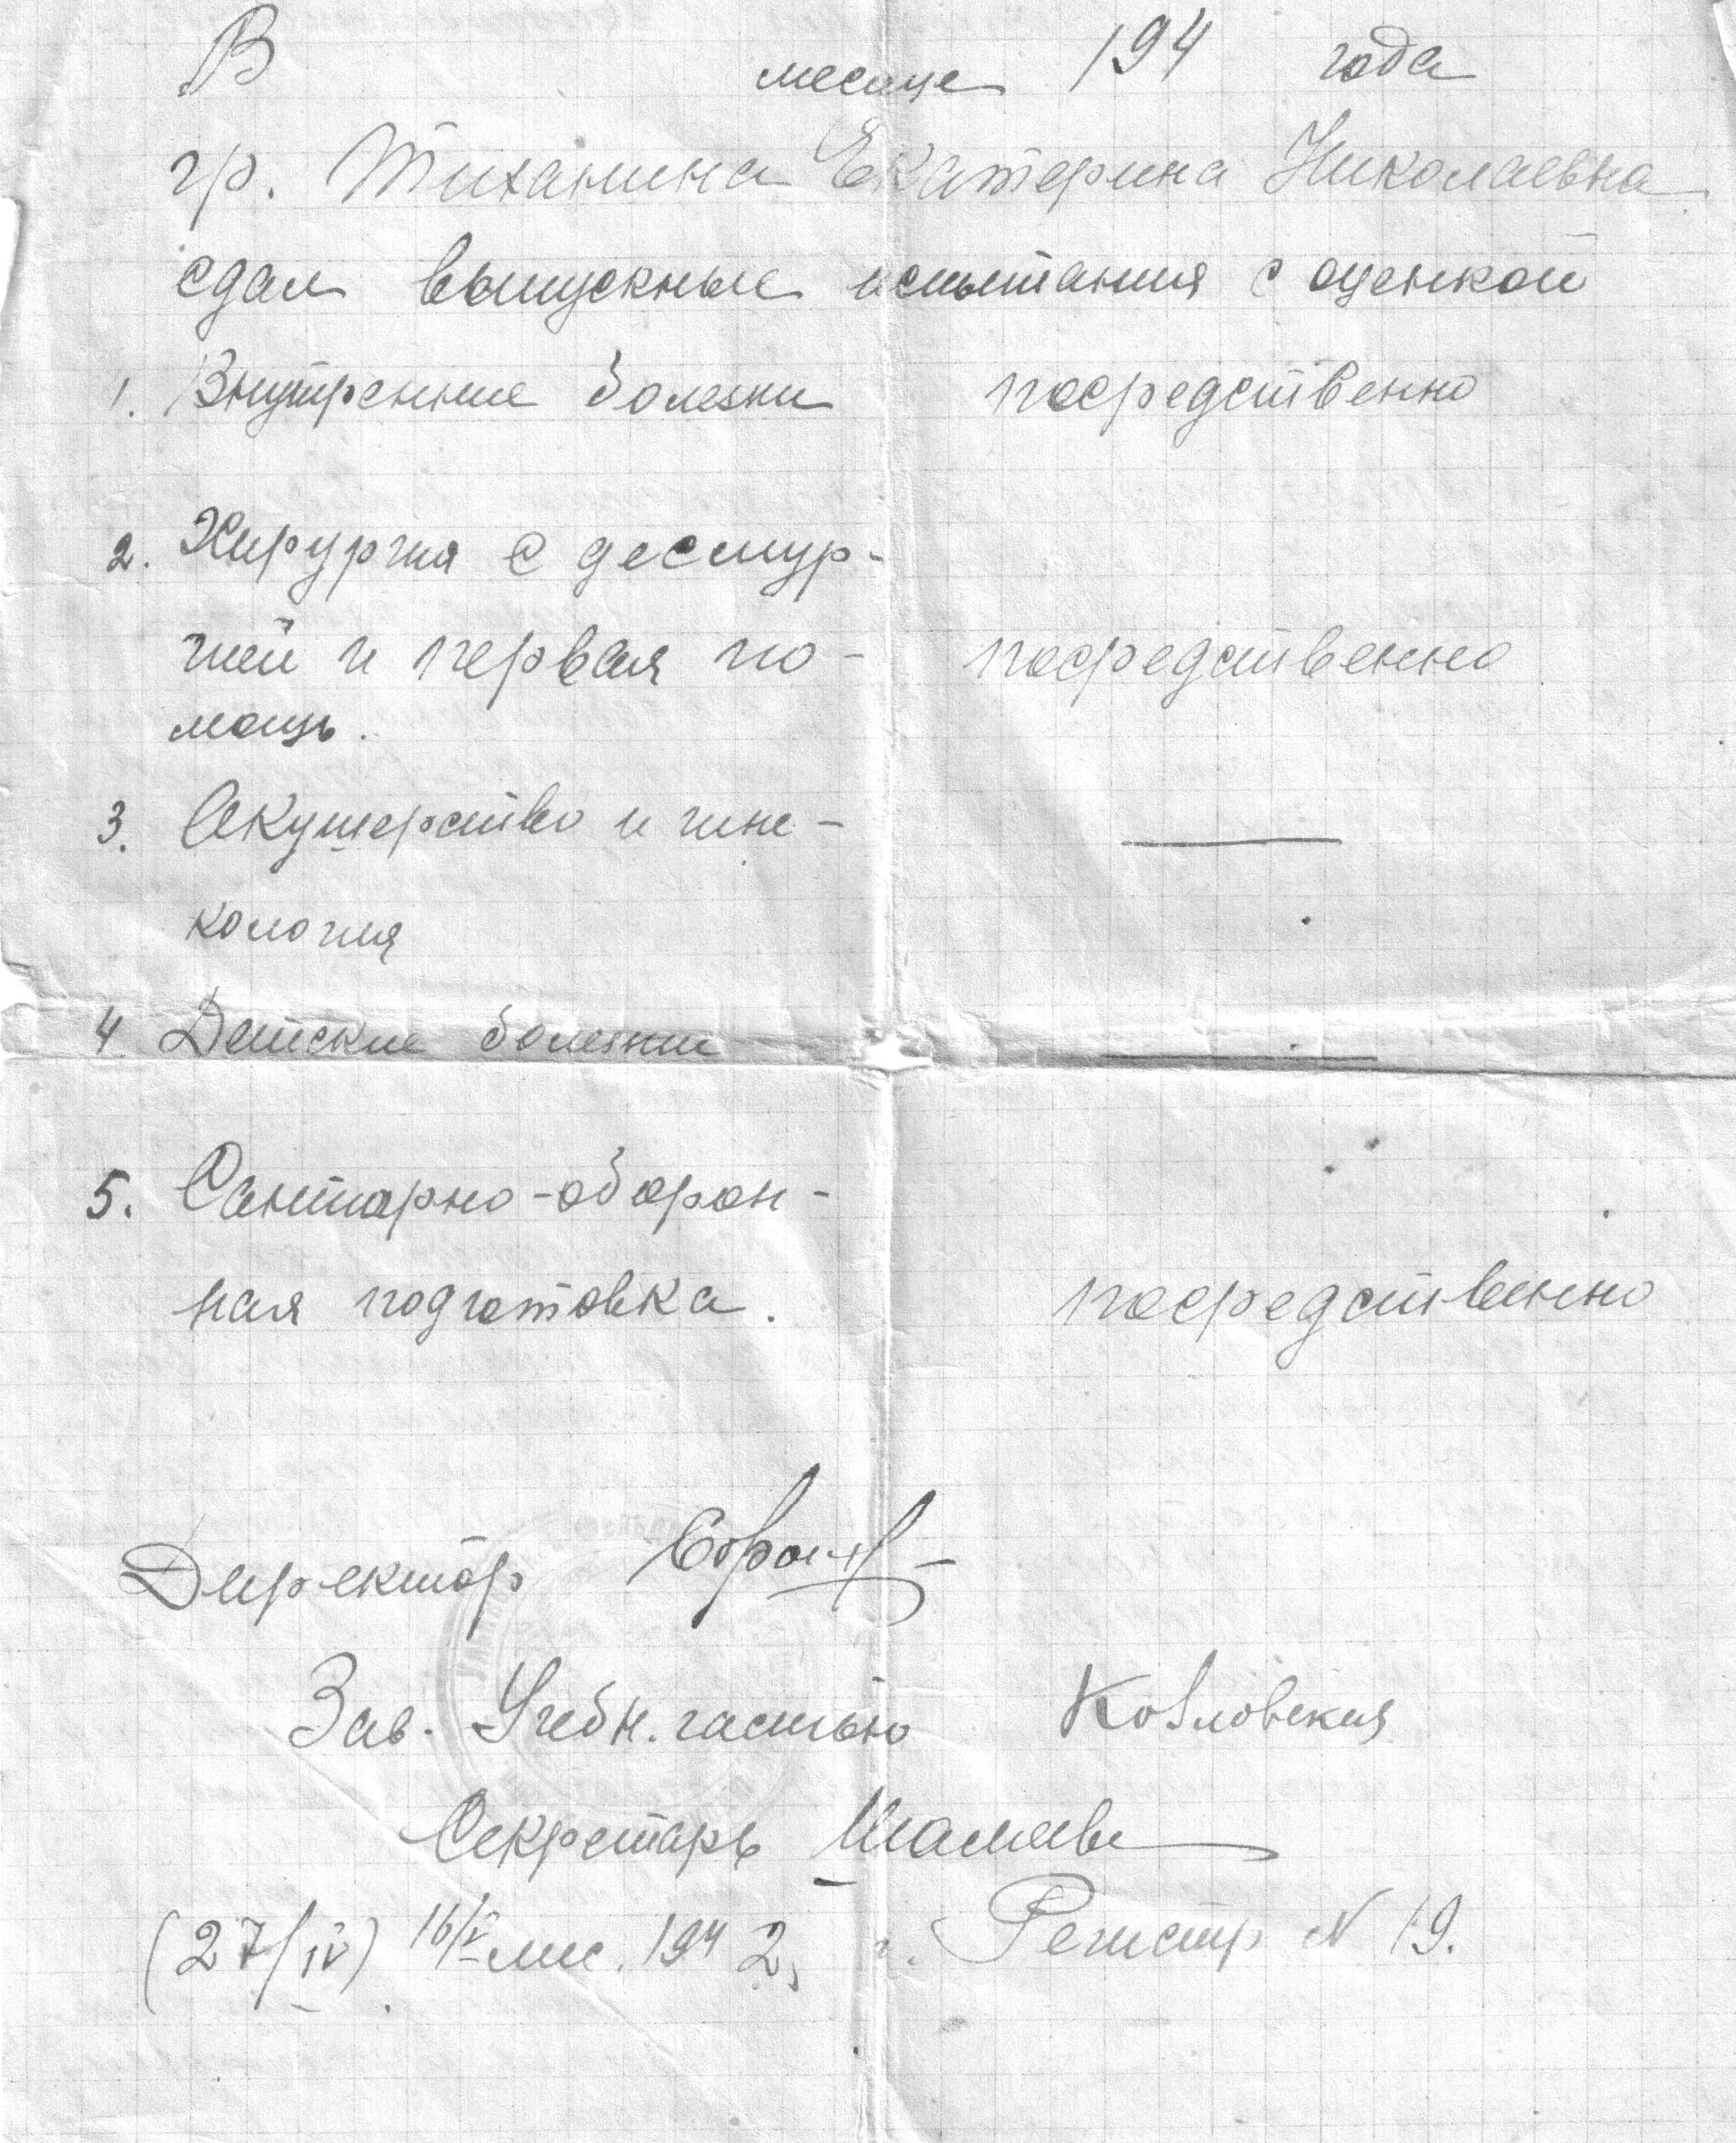 В месяце 194 года
гр. Тиханина Екатерина Николаевна
сдал выпускные испытания с оценкой
1. Внутренние болезни посредственно
2. Хирургия с десмур-
гией и первая по- посредственно
мощь.
3. Акушерство и гине-
кология
4 Детские болезни
5. Санитарно-оборон-
ная подготовка. посредственно
Директор
Зав. Учебн. частью Козловская
Секретарь
(27/IV) 16/V мес. 1942 г. Регистр N 19.